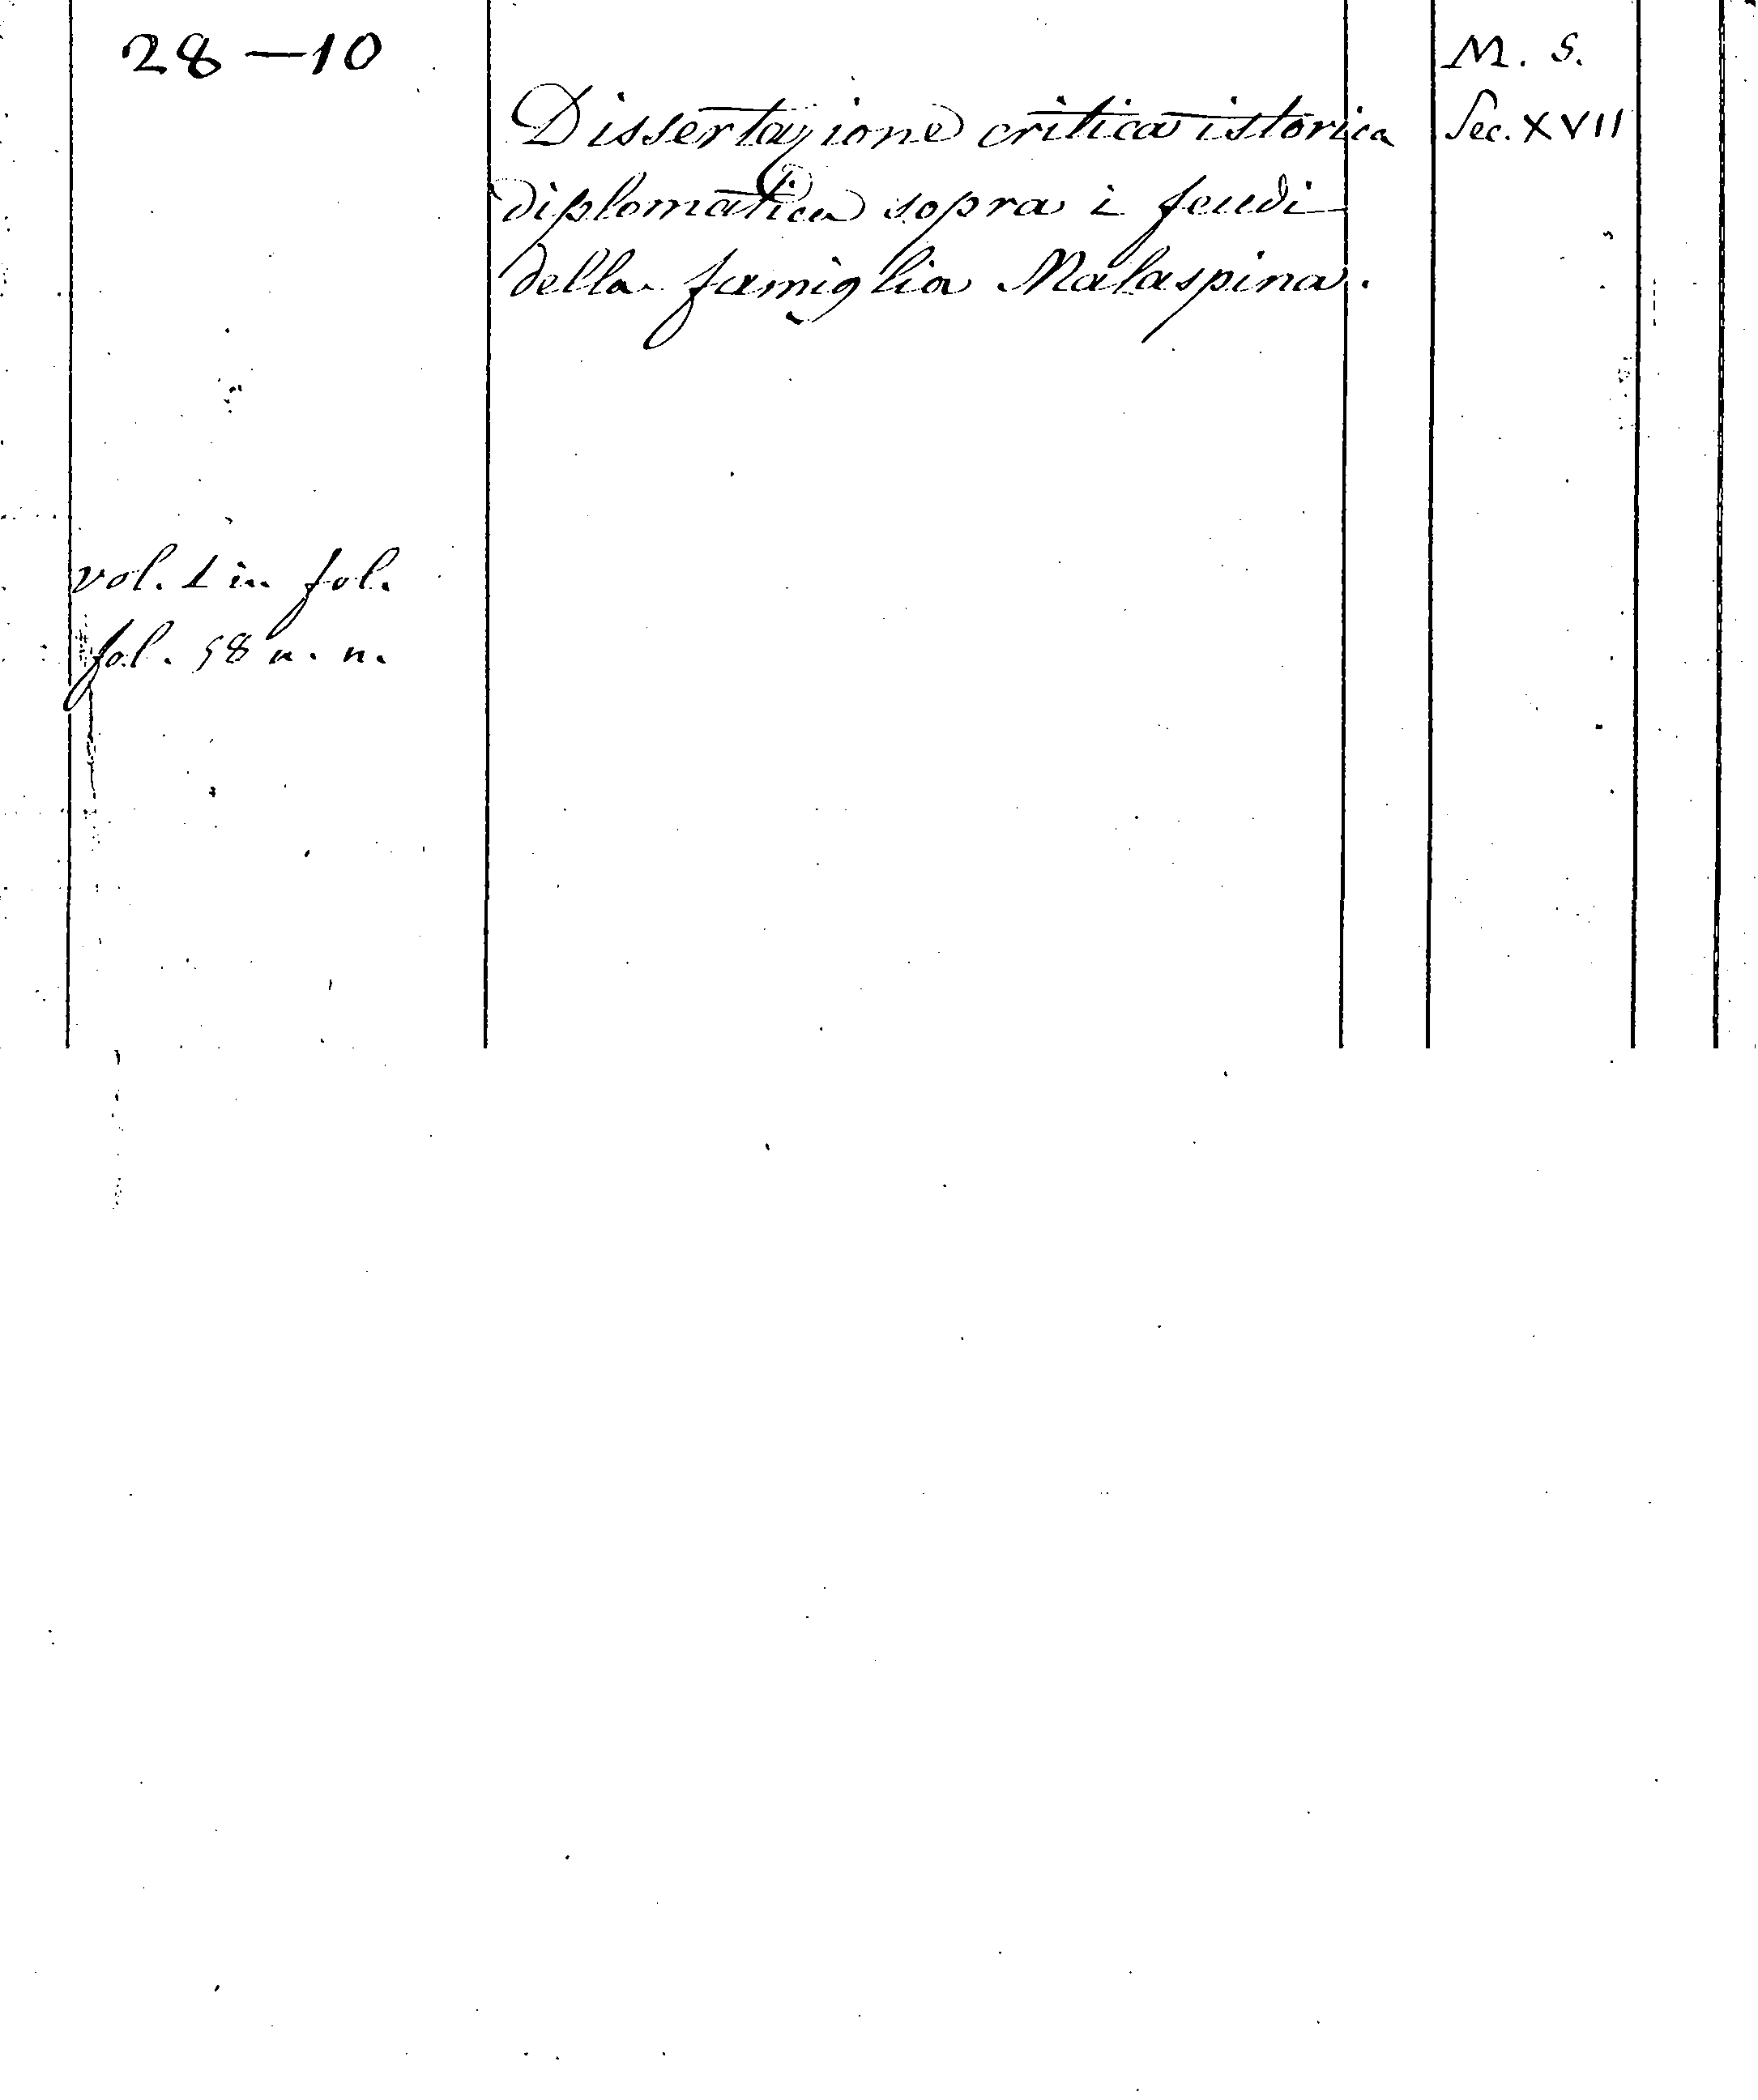 28-10
M. S.
Dissertazione critica istorica
Sec. XVII
diplomatica sopra i feudi
della famiglia Malaspina.
vol. 1 in fol.
fol. 58 n. n.